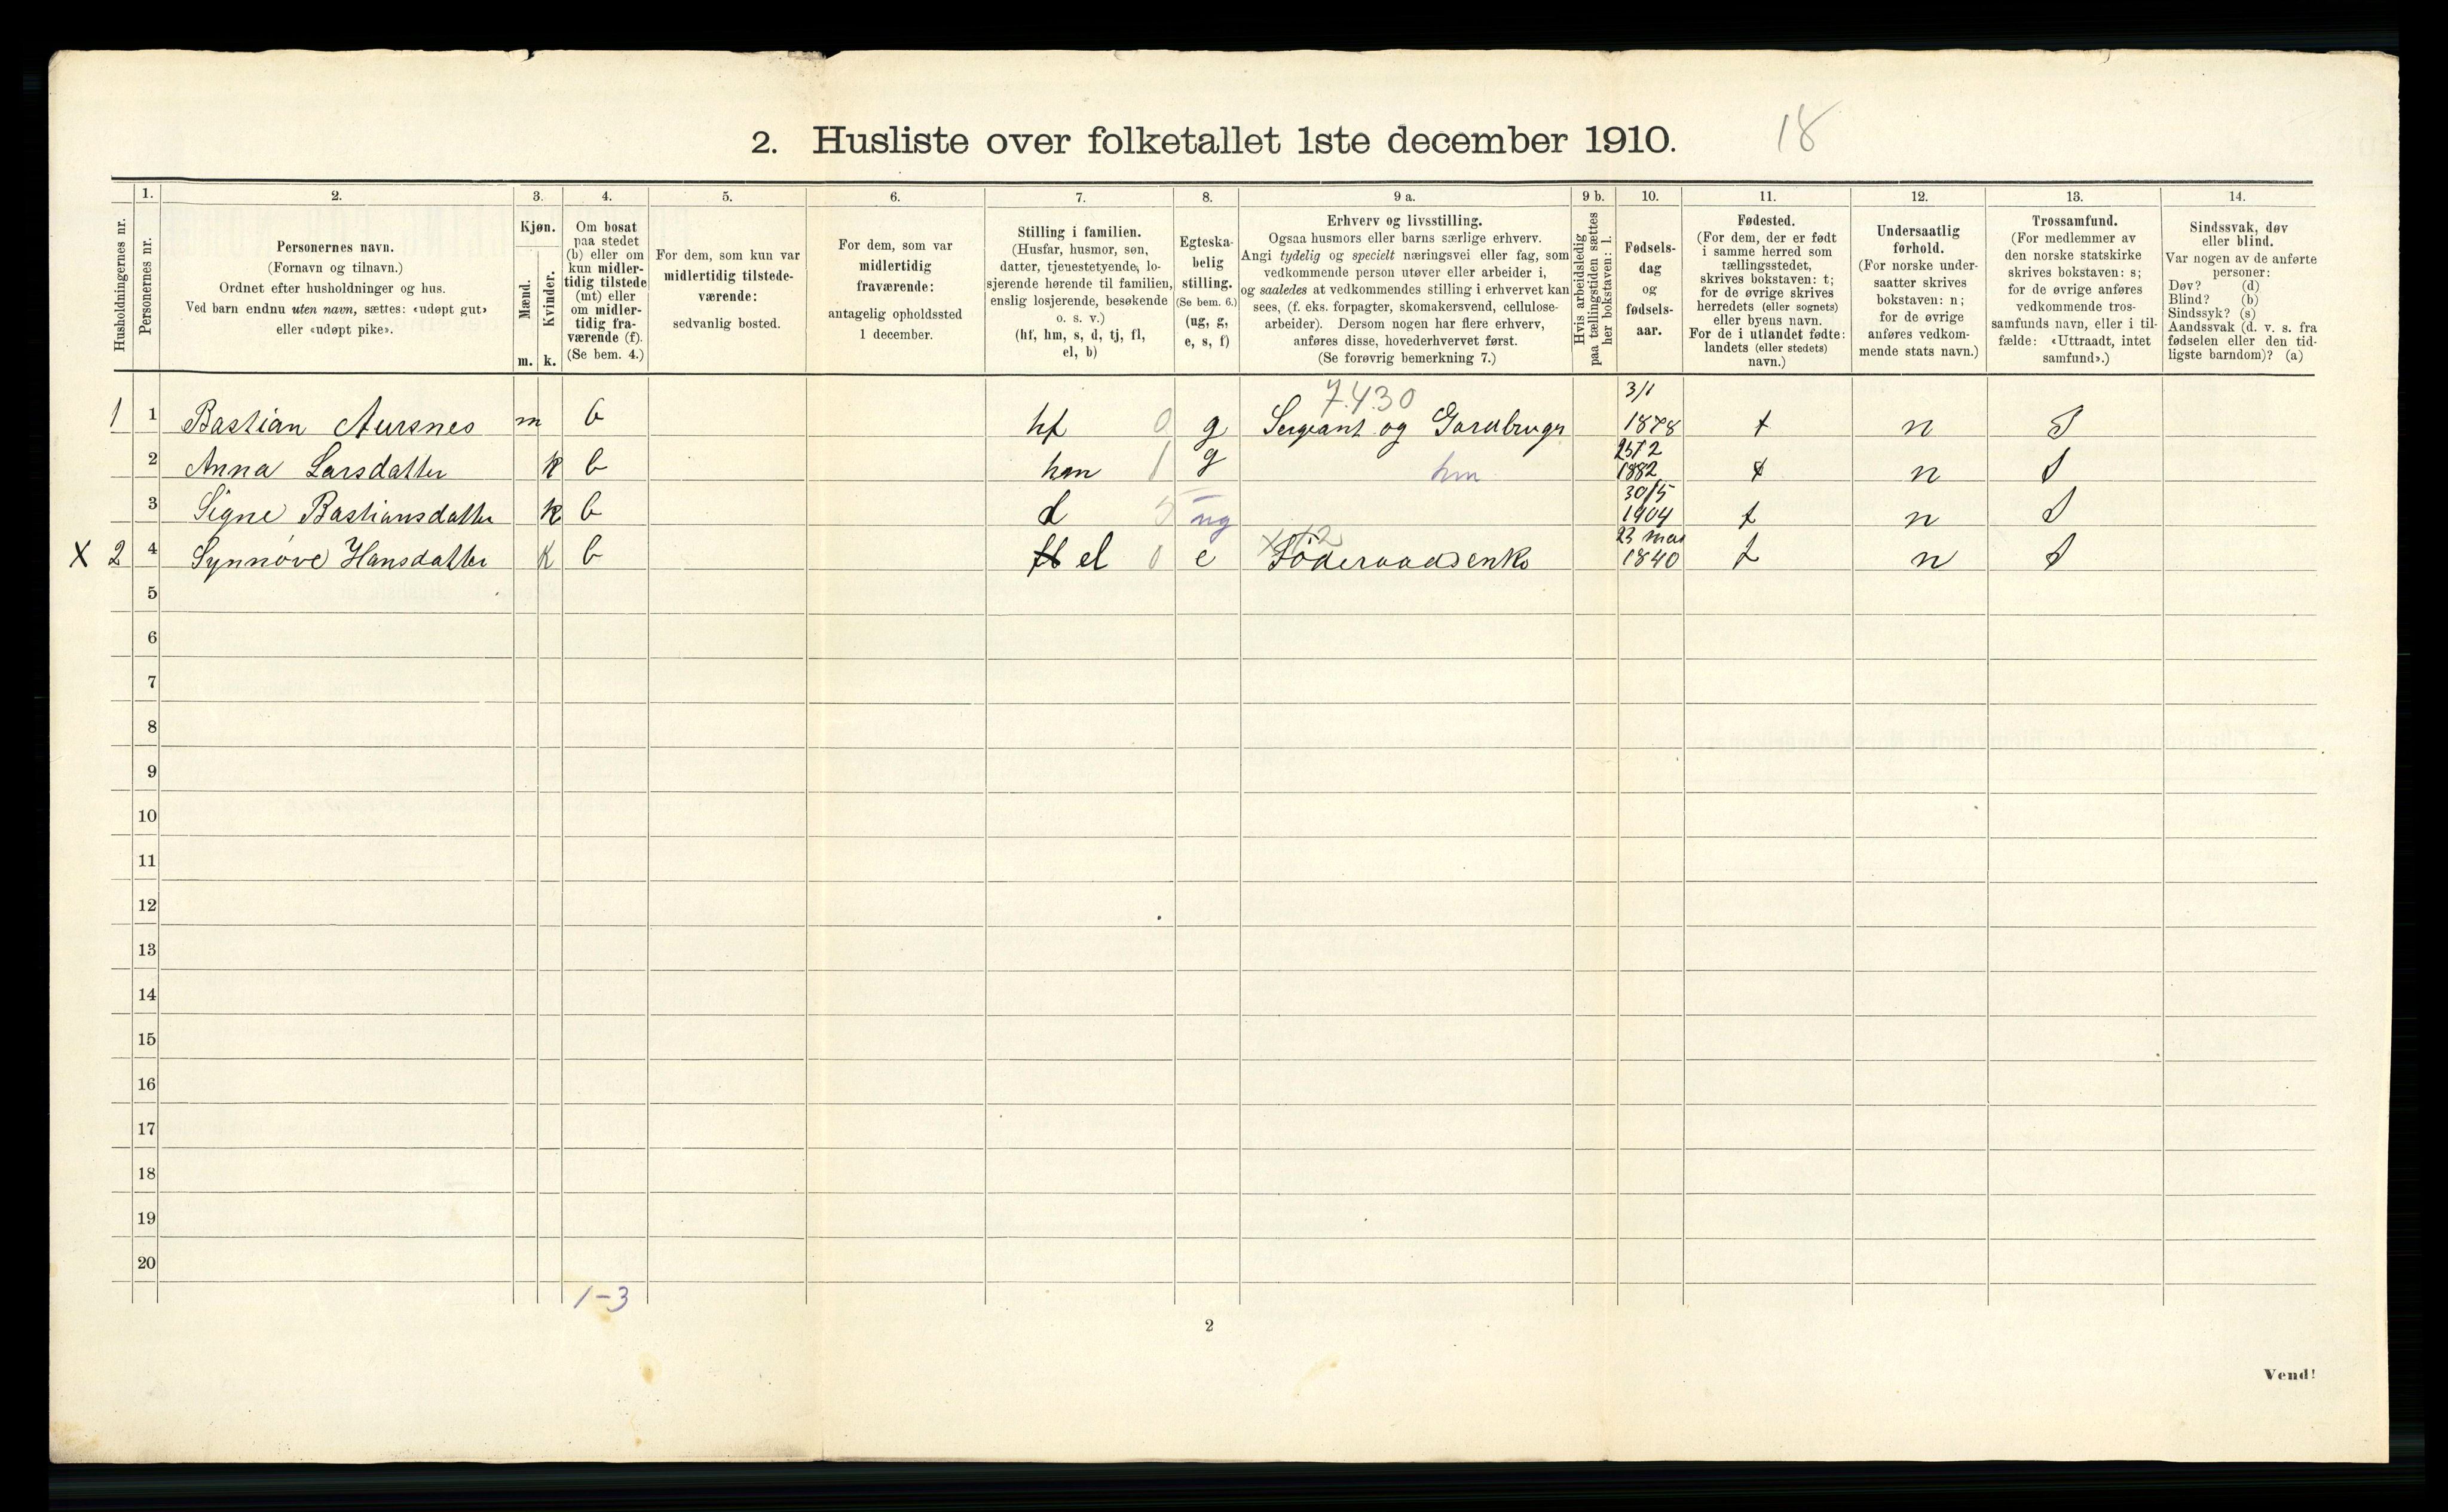 2. Husliste over folketallet 1ste december 1910. 18
Husholdningernes nr.
1. Personernes nr.
2. Personernes navn.
(Fornavn og tilnavn.)
Ordnet efter husholdninger og hus.
Ved barn endnu uten navn, sættes: «udøpt gut»
eller «udøpt pike».
3. Kjøn.
Mænd. m.
Kvinder. k.
4. Om bosat
paa stedet
(b) eller om
kun midler-
tidig tilstede
(mt) eller
om midler-
tidig fra-
værende (f).
(Se bem. 4.)
5. For dem, som kun var
midlertidig tilstede-
værende:
sedvanlig bosted.
6. For dem, som var
midlertidig
fraværende:
antagelig opholdssted
1 december.
7. Stilling i familien.
(Husfar, husmor, søn,
datter, tjenestetyende, lo-
sjerende hørende til familien,
enslig losjerende, besøkende
o. s. v.)
(hf, hm, s, d, tj, fl,
el, b)
8. Egteska-
belig
stilling.
(Se bem. 6.)
(ug, g,
e, s, f)
9 a. Erhverv og livsstilling.
Ogsaa husmors eller barns særlige erhverv.
Angi tydelig og specielt næringsvei eller fag, som
vedkommende person utøver eller arbeider i,
og saaledes at vedkommendes stilling i erhvervet kan
sees, (f. eks. forpagter, skomakersvend, cellulose-
arbeider). Dersom nogen har flere erhverv,
anføres disse, hovederhvervet først.
(Se forøvrig bemerkning 7.)
9 b. Hvis arbeidsledig
paa tællingstiden sættes
her bokstaven: l.
10. Fødsels-
dag
og
fødsels-
aar.
11. Fødested.
(For dem, der er født
i samme herred som
tællingsstedet,
skrives bokstaven: t;
for de øvrige skrives
herredets (eller sognets)
eller byens navn.
For de i utlandet fødte:
landets (eller stedets)
navn.)
12. Undersaatlig
forhold.
(For norske under-
saatter skrives
bokstaven: n;
for de øvrige
anføres vedkom-
mende stats navn.)
13. Trossamfund.
(For medlemmer av
den norske statskirke
skrives bokstaven: s;
for de øvrige anføres
vedkommende tros-
samfunds navn, eller i til-
fælde: «Uttraadt, intet
samfund».)
14. Sindssvak, døv
eller blind.
Var nogen av de anførte
personer:
Døv? (d)
Blind? (b)
Sindssyk? (s)
Aandssvak (d. v. s. fra
fødselen eller den tid-
ligste barndom)? (a)
7.4.30 3/1
1 1 Bastian Aursnes m b hf 0 g Sergeant og Gardbruger 1878 t n S
2 Anna Larsdatter k b hm 1 g hm 1882 t n S
30/5
3 Signe Bastiansdatter k b d 5 ug 1904 t n S
23 mai
X 2 4 Synnøve Hansdatter k b el 0 e Föderaadsenke 1840 t n S
5
6
7
8
9
10
11
12
13
14
15
16
17
18
19
20
1-3
2
Vend!